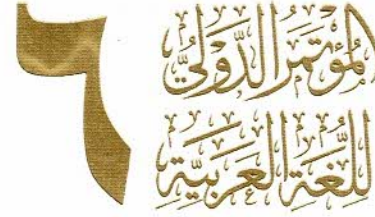 المُؤتمَرُ الدَّوليُّ
للُّغَةِ العَرَبيَّةِ
٦